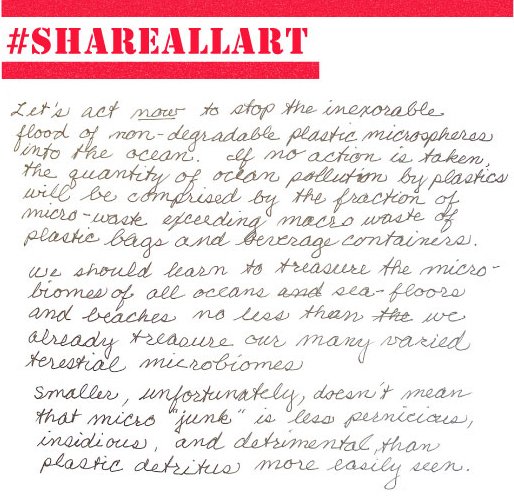 #SHAREALLART
Let's act now to stop the inexorable
flood of non-degradable plastic microspheres
into the ocean. If no action is taken,
the quantity of ocean pollution by plastics
will be comprised by the fraction of
micro-waste exceeding macro waste of
plastic bags and beverage containers.
We should learn to treasure the micro-
biomes of all oceans and sea-floors
and beaches no less than the we
already treasure our many varied
terestial microbiomes
Smaller, unfortunately, doesn't mean
that micro "junk" is less pernicious,
insidious, and detrimental, than
plastic detritus more easily seen.